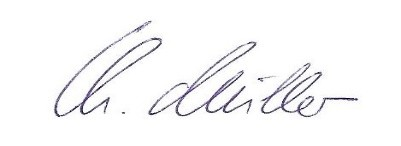 Ch. Müller